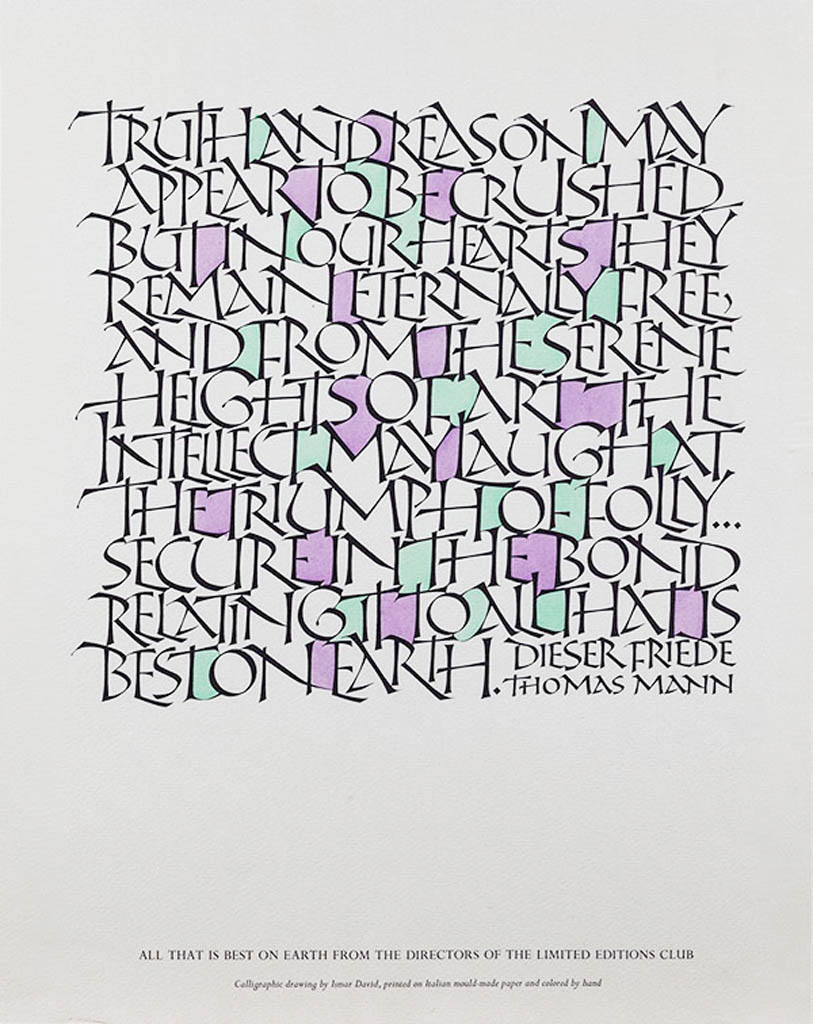 TRUTH AND REASON MAY
APPEAR TO BE CRUSHED
BUT IN OUR HEARTS THEY
REMAIN ETERNALLY FREE,
AND FROM THE SERENE
HEIGHTS OF ART THE
INTELLECT MAY LAUGH AT
THE TRIUMPH OF FOLLY...
SECURE IN THE BOND
RELATING IT TO ALL THAT IS
BEST ON EARTH. DIESER FRIEDE
THOMAS MANN
ALL THAT IS BEST ON EARTH FROM THE DIRECTORS OF THE LIMITED EDITIONS CLUB
Calligraphic drawing by Ismar David, printed on Italian mould-made paper and colored by hand